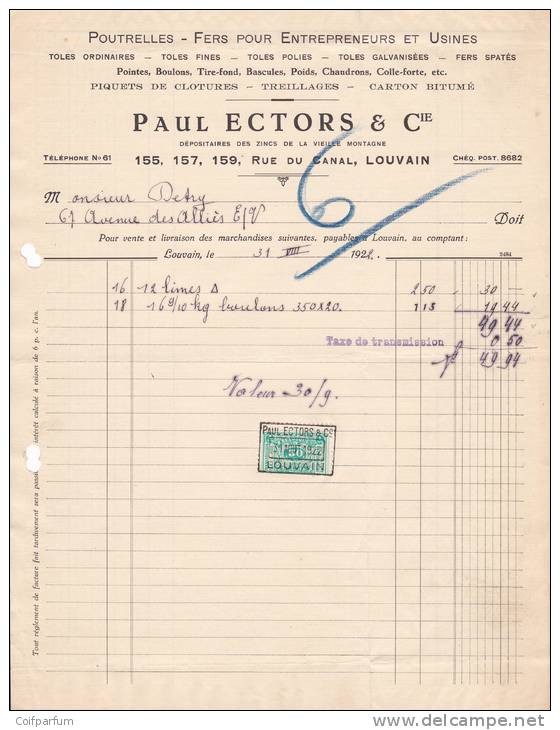 POUTRELLES - FERS POUR ENTREPRENEURS ET USINES
TOLES ORDINAIRES - TOLES FINES - TOLES POLIES - TOLES GALVANISÉES - FERS SPATÉS
Pointes, Boulons, Tire-fond, Bascules, Poids, Chaudrons, Colle-forte, etc.
PIQUETS DE CLOTURES - TREILLAGES - CARTON BITUMÉ
PAUL ECTORS & CIE
DÉPOSITAIRES DES ZINCS DE LA VIEILLE MONTAGNE
TÉLÉPHONE No 61 155, 157, 159, RUE DU CANAL, LOUVAIN CHÈQ. POST. 8682
6/
Monsieur Detry
67 Avenue des Alliés E/V Doit
Pour vente et livraison des marchandises suivantes, payables à Louvain, au comptant:
Louvain, le 31 VIII 1922. 2484
16 12 limes Δ 250 30 —
18 16 9/10 kg boulons 350x20. 115 19 44
49 44
Taxe de transmission 0 50
49 94
Valeur 30/9.
PAUL ECTORS & Cie
1922
LOUVAIN
Tout règlement de facture fait tardivement sera passible intérêt calculé à raison de 6 p. c. l'an.
Coifparfum
www.delcampe.net